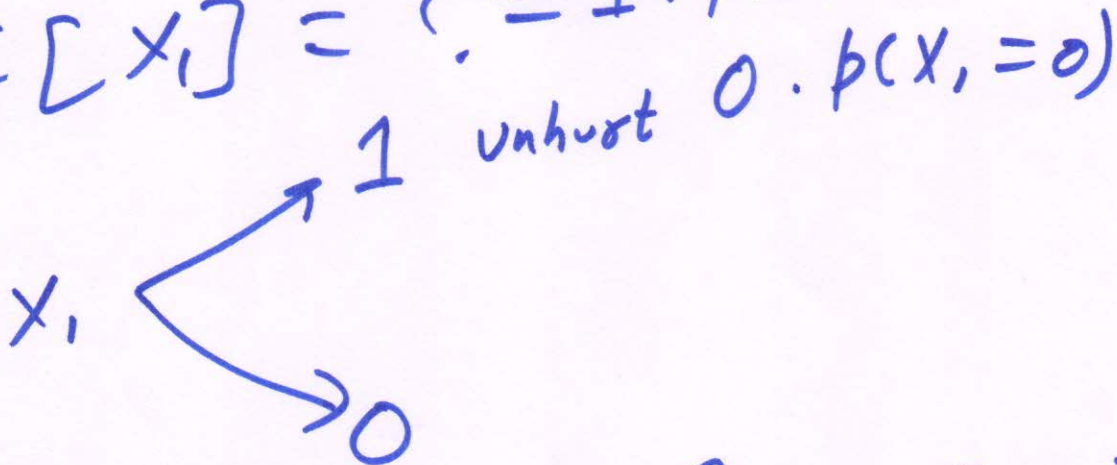 [X₁] = ?
0 . p(X₁ = 0)
1 unhurt
X₁
0